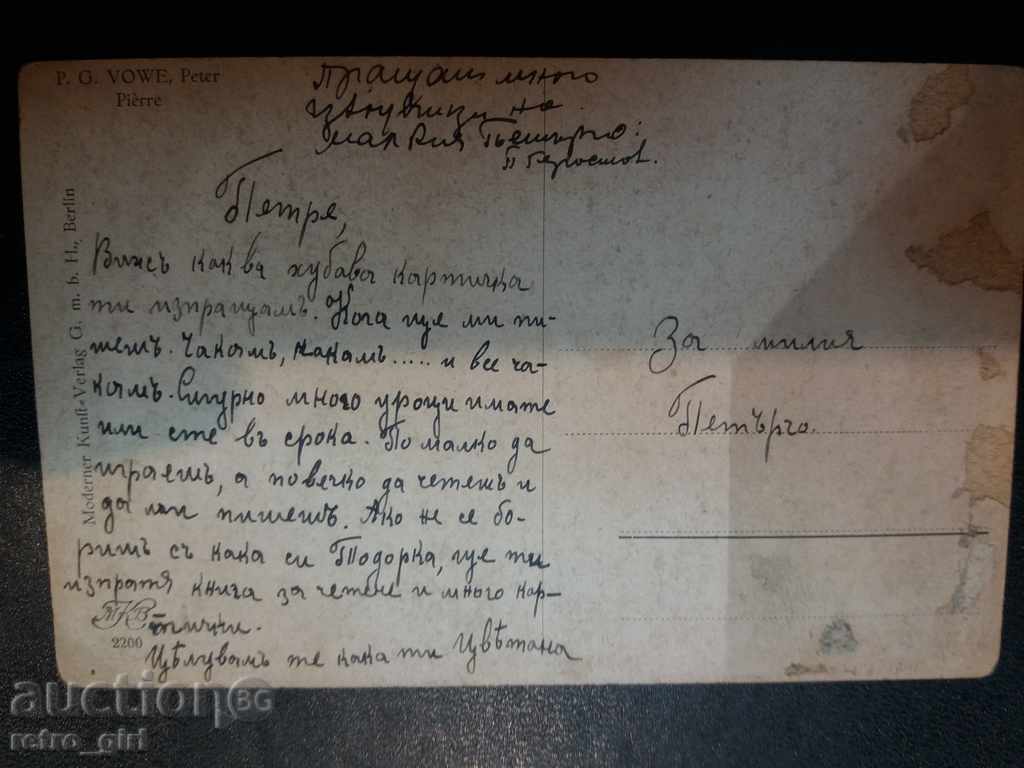 P. G. VOWE, Peter
Pièrre
Пращам много
целувки на
малкия Петърчо:
Петре,
Вижъ каква хубава картичка
ти изпращамъ. Кога ще ми пи-
шешъ. Чакамъ, чакамъ..... и все ча-
камъ. Сигурно много уроци имате
или сте въ срока. По малко да
играешъ, а повечко да четешъ и
да ми пишешъ. Ако не се бо-
ришъ съ кака си Тодорка, ще ти
изпратя книга за четене и много кар-
тички.
Цѣлувамъ те кака ти Цвѣтана
За милия
Петърчо.
Moderner Kunst-Verlag G. m. b. H., Berlin
MKB
2200
auctionBG
retro_girl